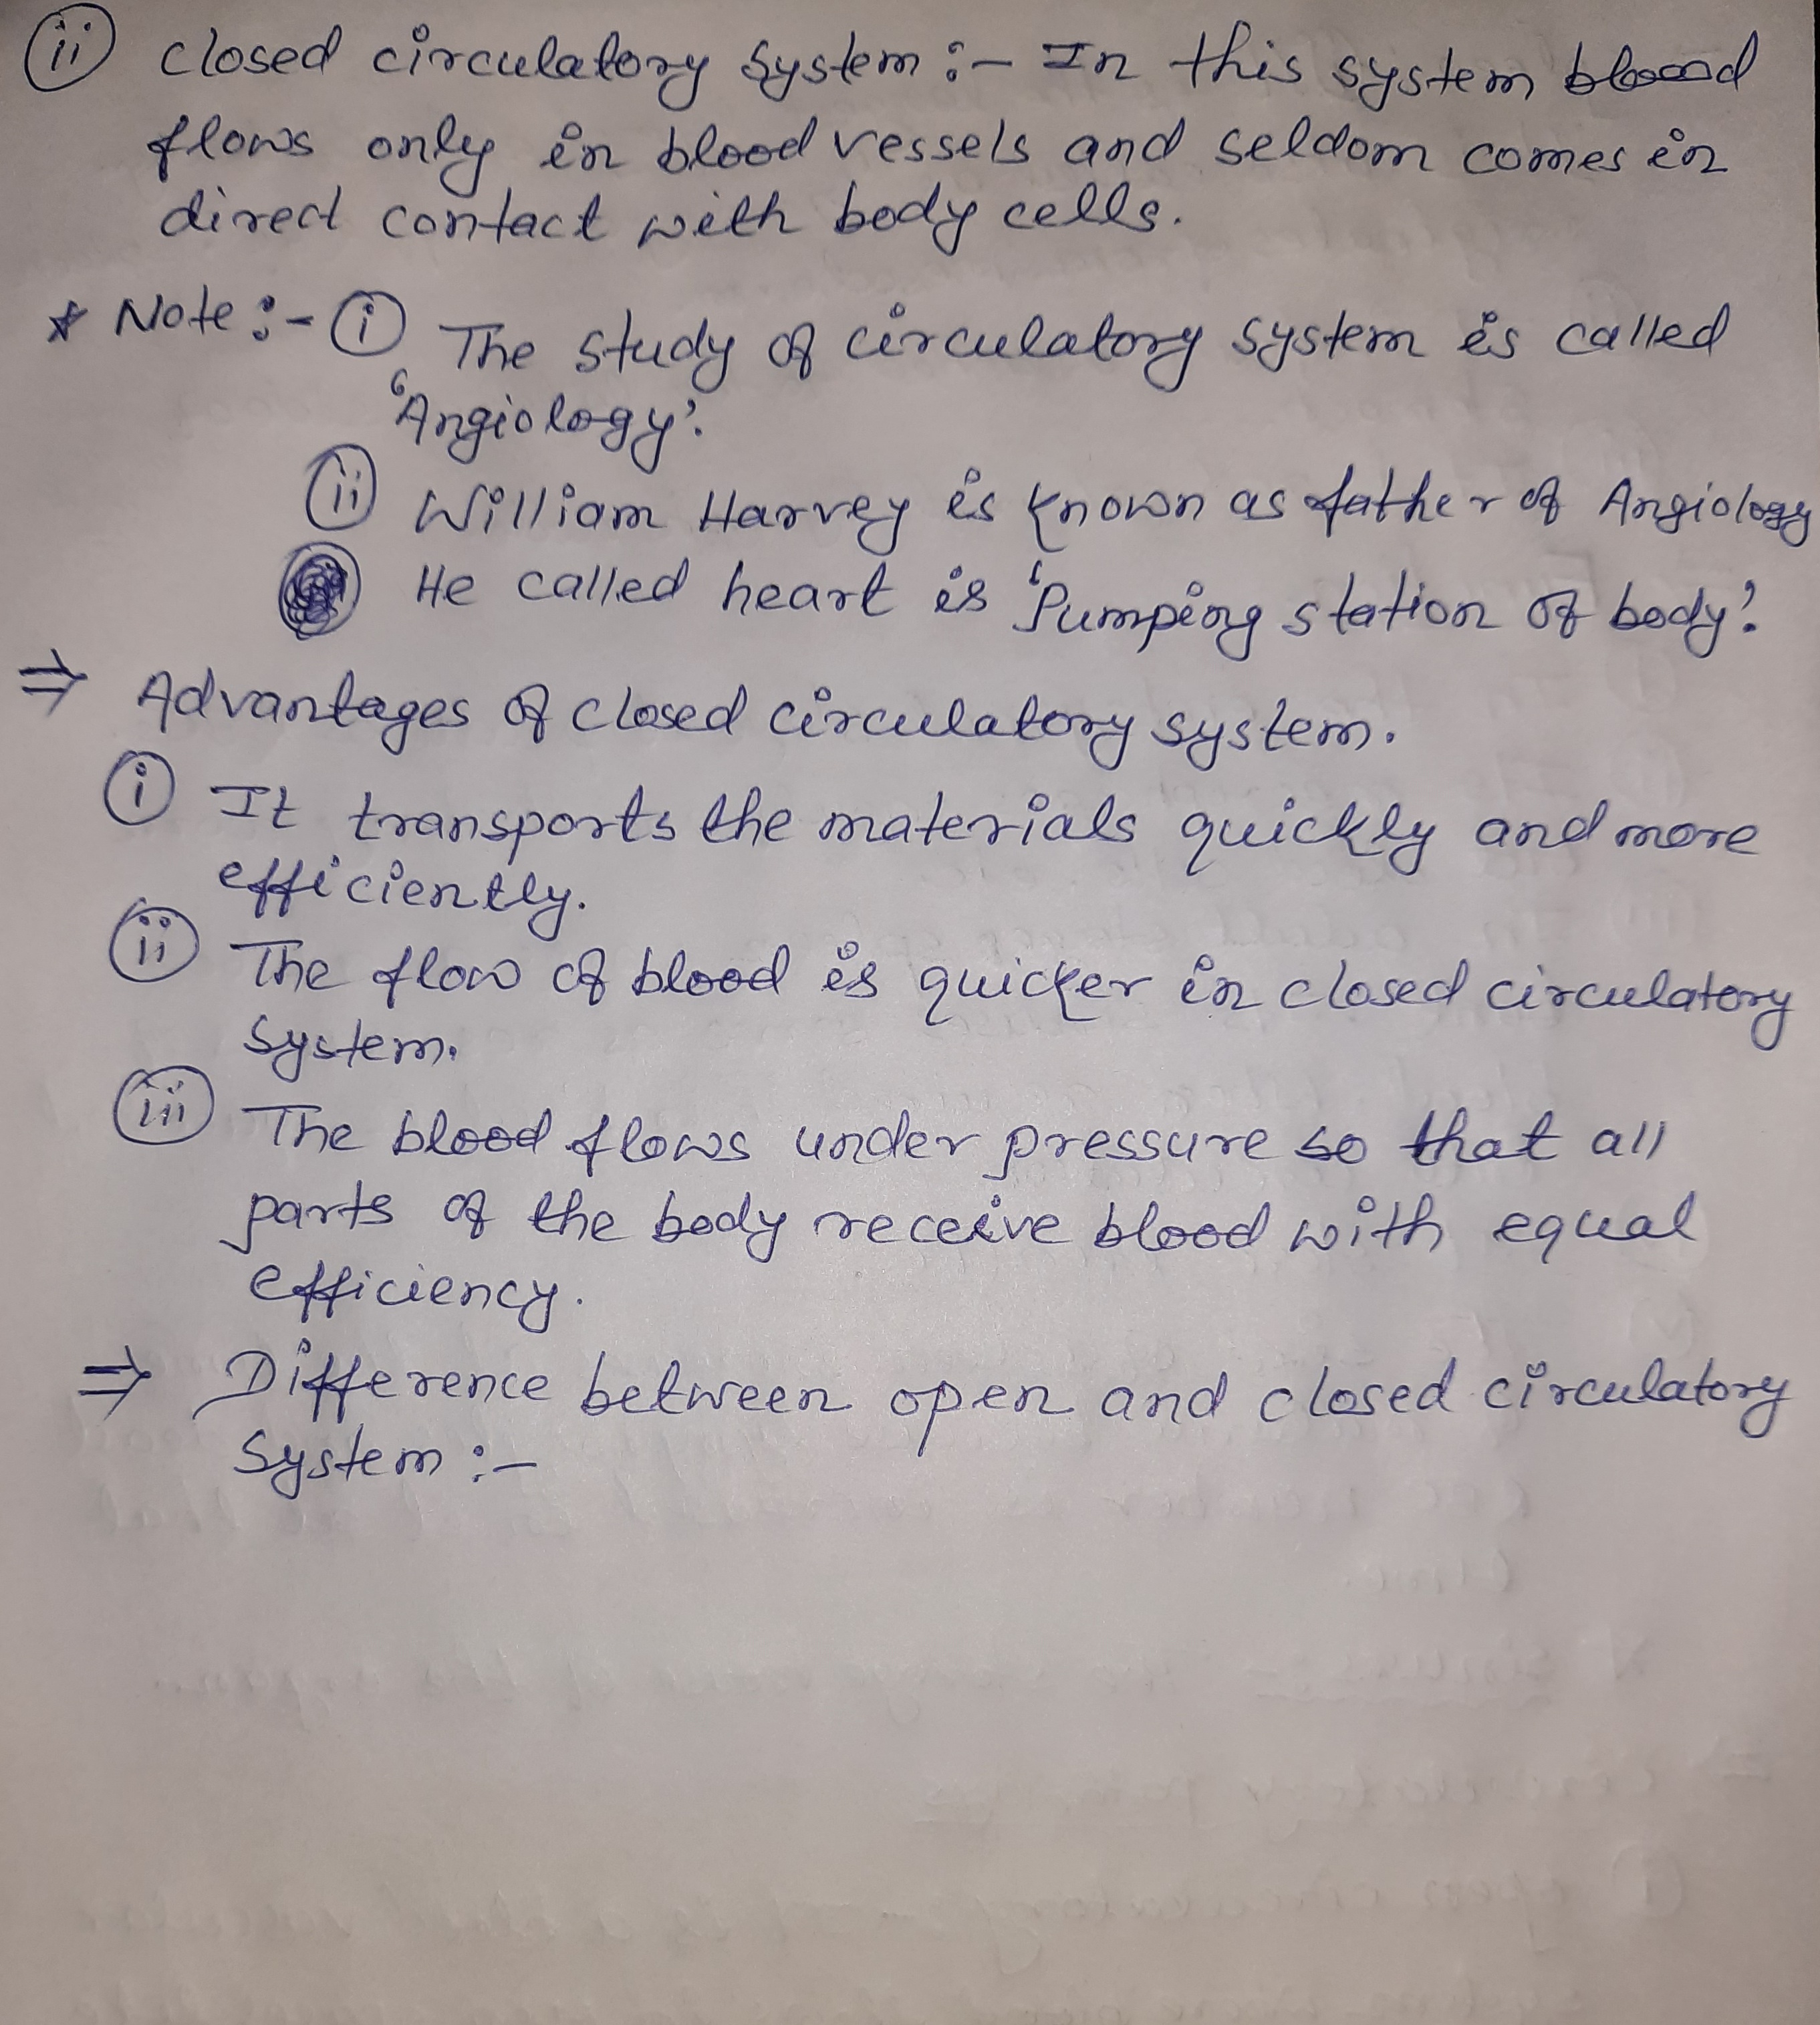 (ii) Closed circulatory system :- In this system blood
flows only in blood vessels and seldom comes in
direct contact with body cells.
* Note :- (i) The study of circulatory system is called
'Angiology'.
(ii) William Harvey is known as father of Angiology
He called heart is 'Pumping station of body'.
⇒ Advantages of closed circulatory system.
(i) It transports the materials quickly and more
efficiently.
(ii) The flow of blood is quicker in closed circulatory
system.
(iii) The blood flows under pressure so that all
parts of the body receive blood with equal
efficiency.
⇒ Difference between open and closed circulatory
System :-